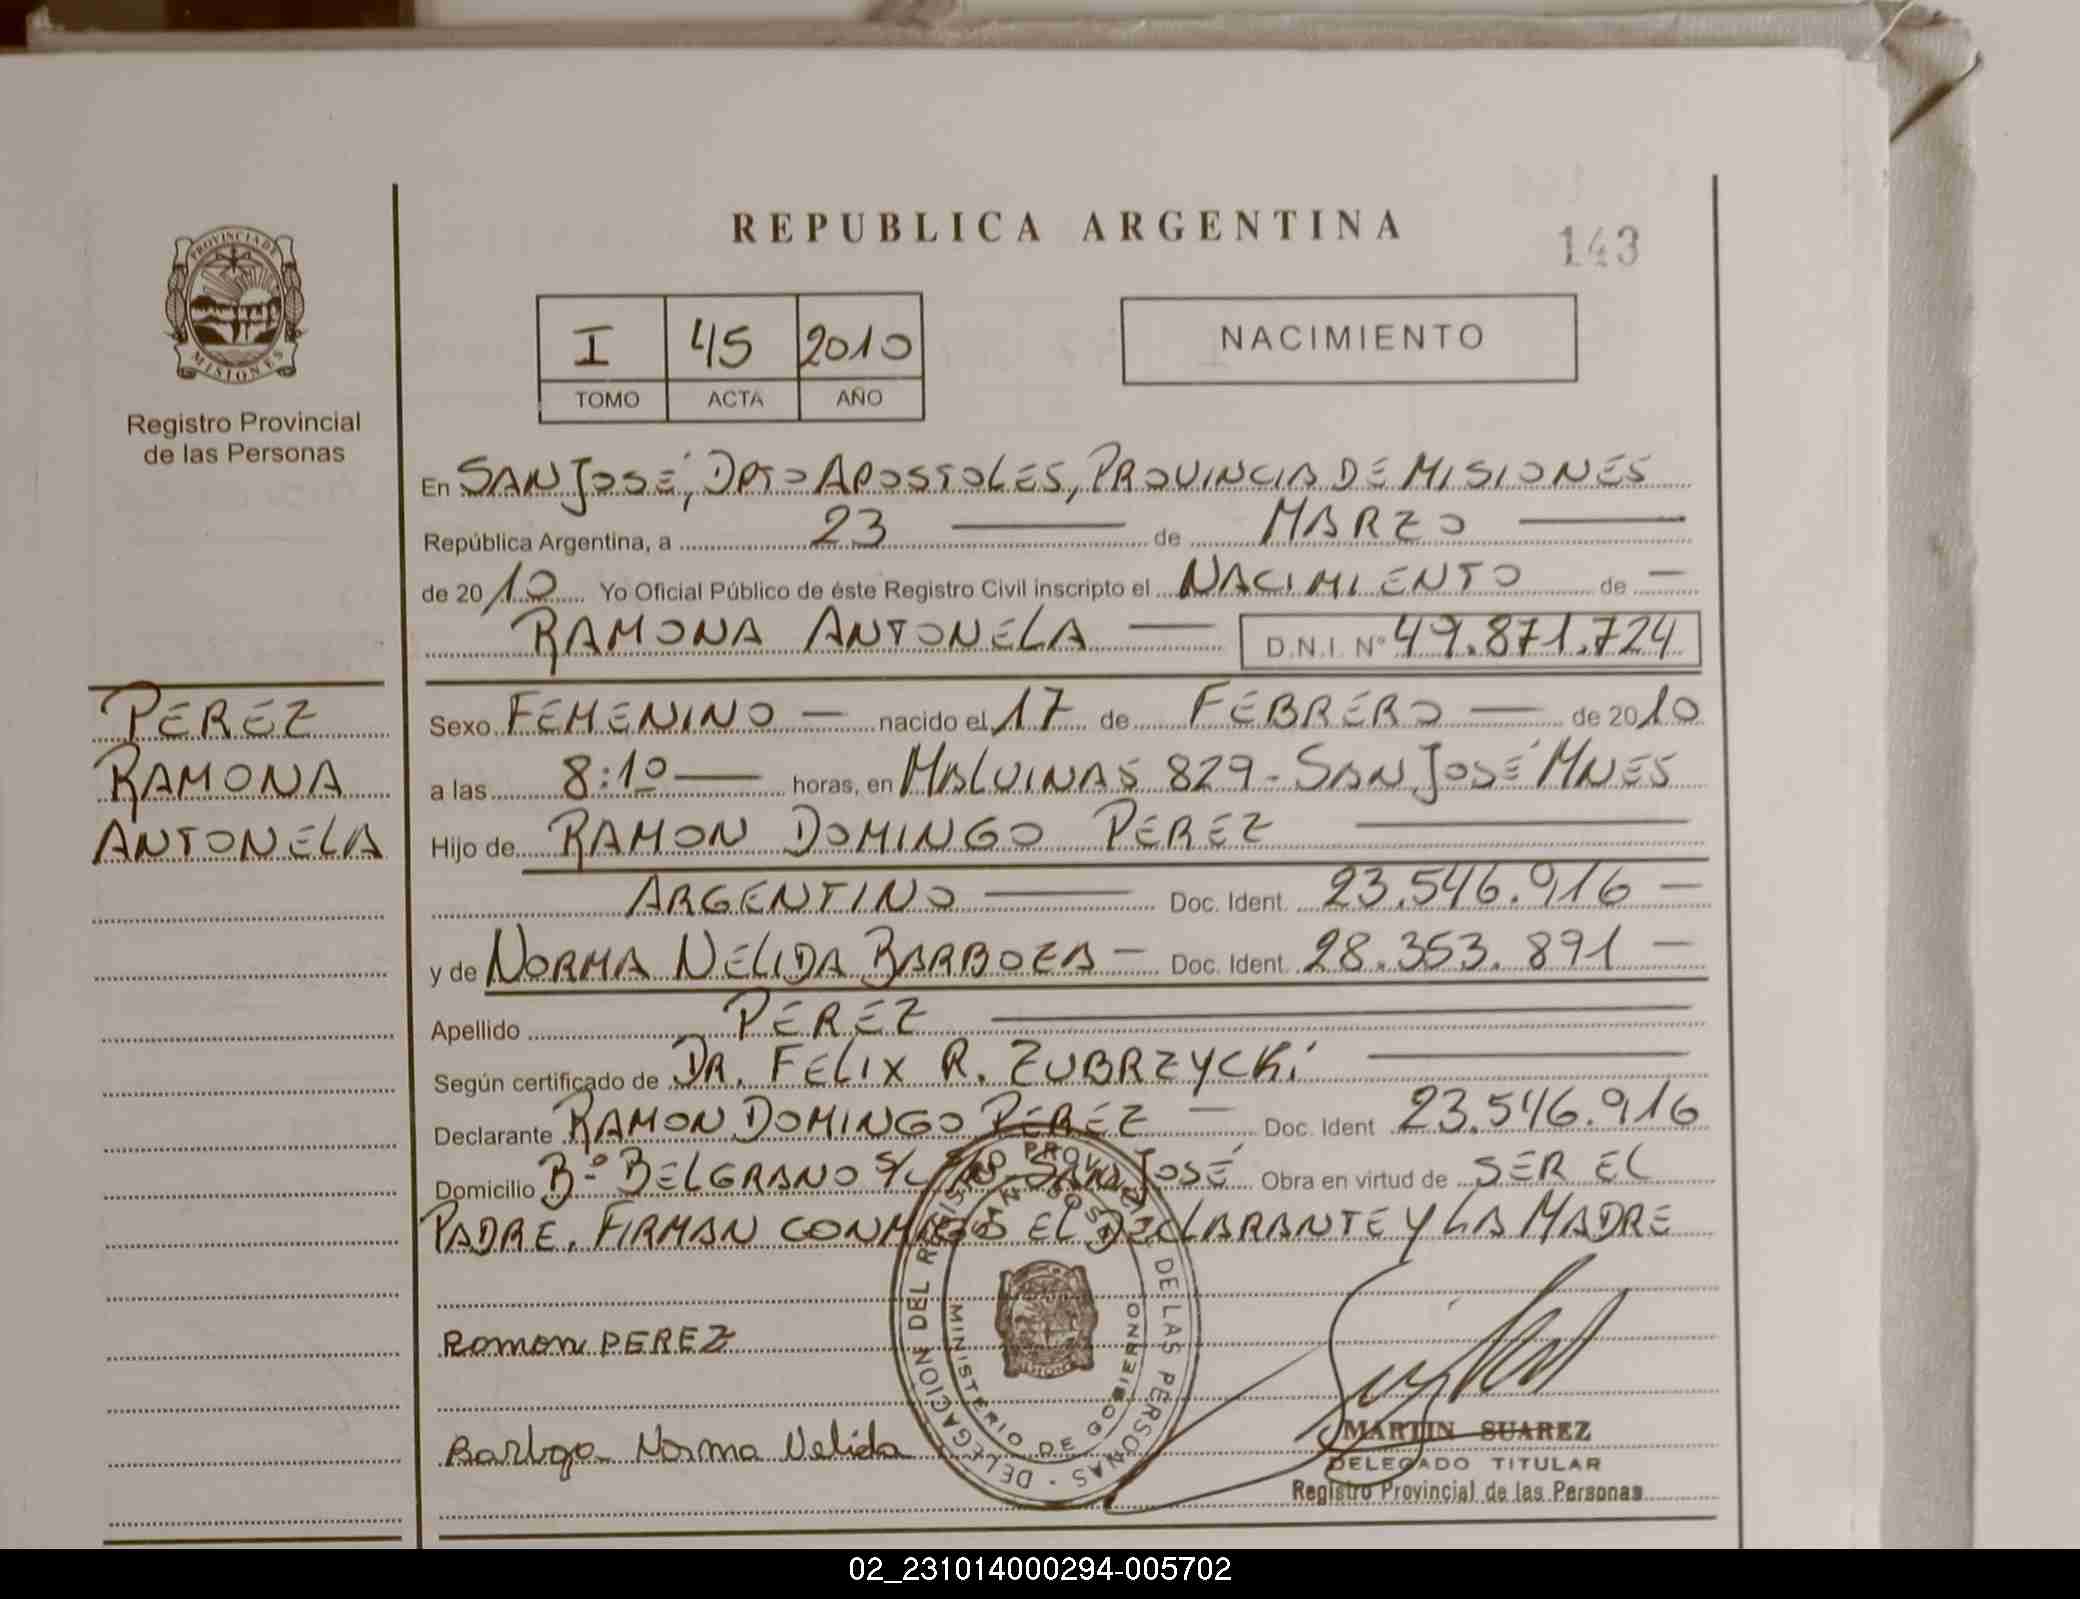 REPUBLICA ARGENTINA
143
PROVINCIA DE MISIONES
Registro Provincial
de las Personas
I 45 2010
TOMO ACTA AÑO
NACIMIENTO
En SAN JOSÉ, DPTO APOSTOLES, PROVINCIA DE MISIONES
República Argentina, a 23 de MARZO
de 2010 Yo Oficial Público de éste Registro Civil inscripto el NACIMIENTO de
RAMONA ANTONELA D.N.I. Nº 49.871.724
PEREZ
RAMONA
ANTONELA
Sexo FEMENINO nacido el 17 de FEBRERO de 2010
a las 8:10 horas, en MALVINAS 829 - SAN JOSÉ MNES
Hijo de RAMON DOMINGO PEREZ
ARGENTINO Doc. Ident. 23.546.916
y de NORMA NELIDA BARBOZA Doc. Ident. 28.353.891
Apellido PEREZ
Según certificado de DR. FELIX R. ZUBRZYCKI
Declarante RAMON DOMINGO PEREZ Doc. Ident 23.546.916
Domicilio Bº BELGRANO S/ SAN JOSÉ Obra en virtud de SER EL
PADRE. FIRMAN CONMIGO EL DECLARANTE Y LA MADRE
DELEGACION DEL REGISTRO PROVINCIAL DE LAS PERSONAS
SAN JOSE
MINISTERIO DE GOBIERNO
Ramon PEREZ
Norma Nelida
MARTIN SUAREZ
DELEGADO TITULAR
Registro Provincial de las Personas
02_231014000294-005702